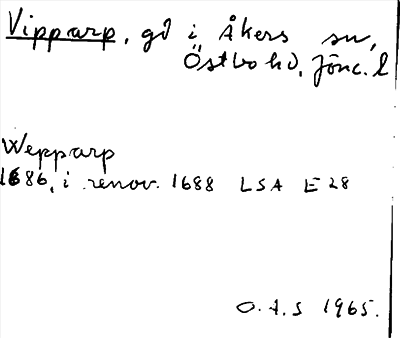 Vipparp, gd i Åkers sn,
Östbo hd, Jönc. l
Wepparp
1686, i renov. 1688 LSA E 28
O.A.S 1965.